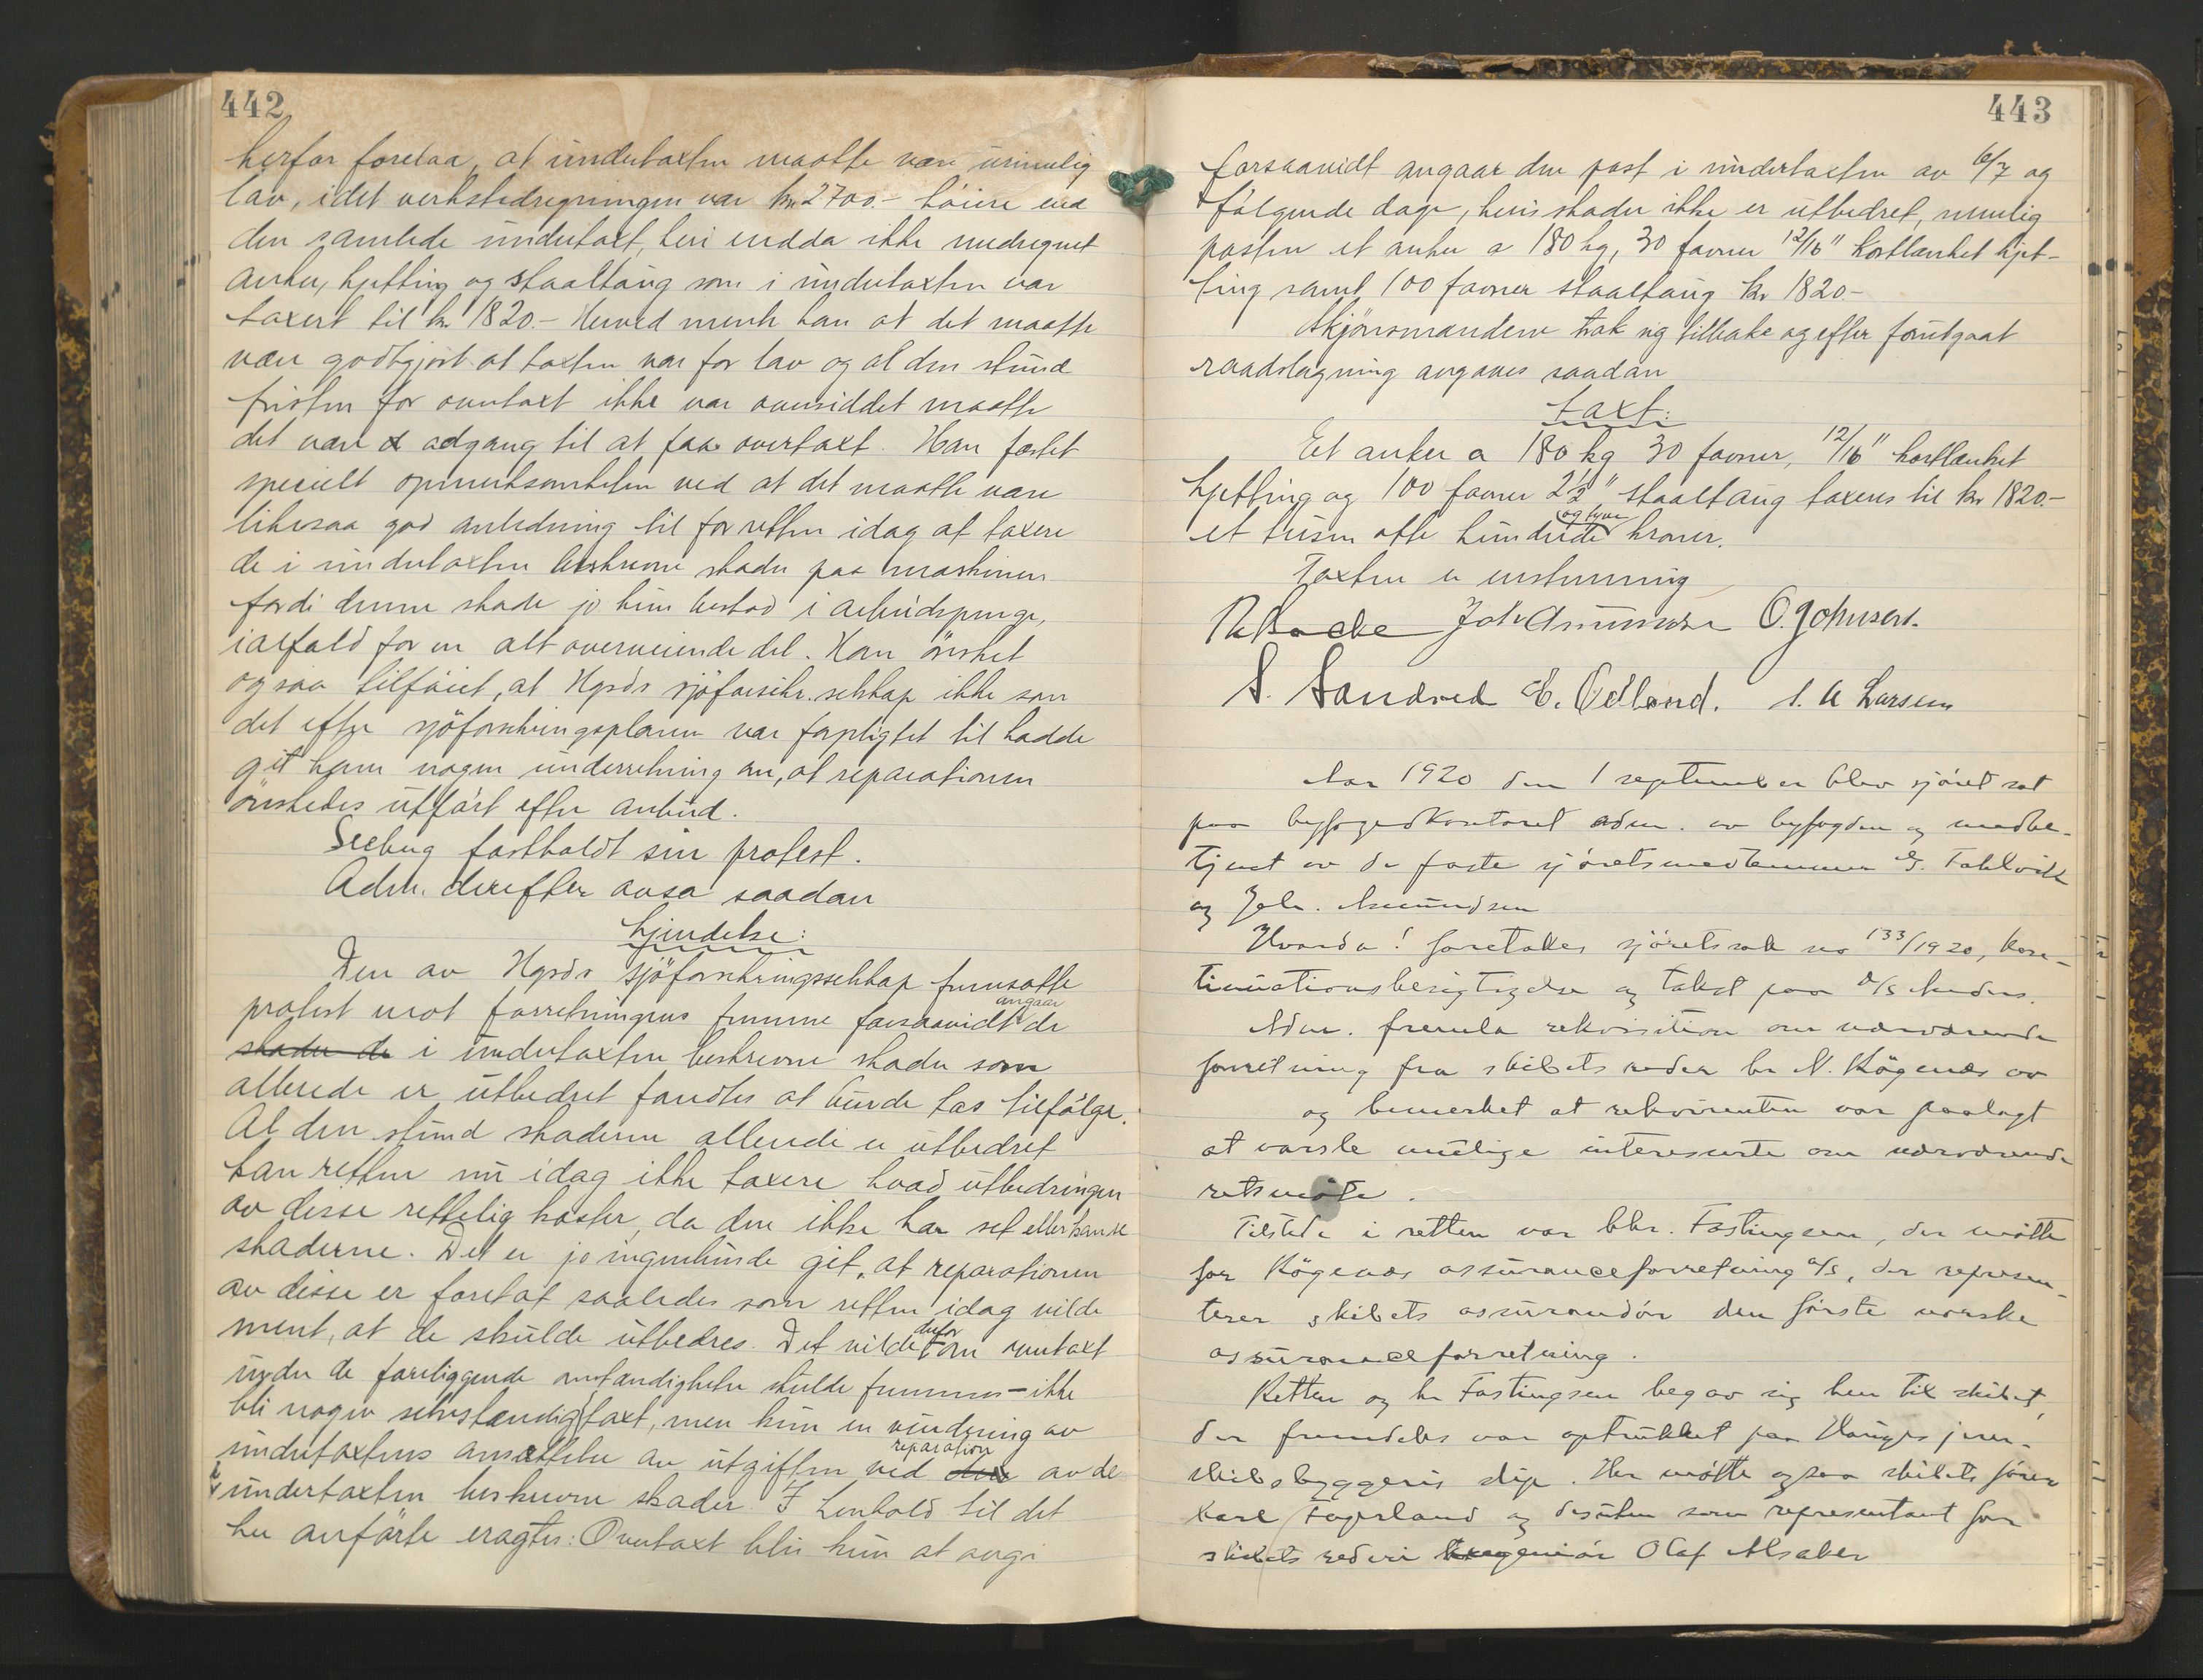 442
herfor forelaa, at undertaxten maatte være urimelig
lav, idet verkstedregningen var kr 2700.- høiere end
den samlede undertaxt, heri endda ikke medregnet
anker, kjetting og staaltaug som i undertaxten var
taxert til kr 1820.- Herved mente han at det maatte
være godtgjort at taxten var for lav og al den stund
fristen for overtaxt ikke var oversiddet maatte
det være adgang til at faa overtaxt. Han fæstet
specielt opmerksomheten ved at det maatte være
likesaa god anledning til for retten idag at taxere
de i undertaxten beskrevne skader paa maskinen
fordi denne skade jo kun bestod i arbeidspenge,
ialfald for en alt overveiende del. Han ønsket
ogsaa tilføiet, at Hgsds sjøforsikr. selskap ikke som
det efter sjøforsikringsplanen var forpligtet til hadde
git ham nogen underretning om, at reparationen
ønskedes utført efter anbud.
Seeberg fastholdt sin protest.
Adm. derefter avsa saadan
kjendelse:
Den av Hgsds sjøforsikringsselskap fremsatte
protest mot forretningens fremme forsaavidt angaar de
skader de i undertaxten beskrevne skader som
allerede er utbedret fandtes at burde tas tilfølge.
Al den stund skaderne allerede er utbedret
kan retten nu idag ikke taxere hvad utbedringen
av disse rettelig koster, da den ikke har set eller kan se
skaderne. Det er jo ingenlunde git, at reparationen
av disse er foretat saaledes som retten idag vilde
ment, at de skulde utbedres. Det vilde derfor om overtaxt
under de foreliggende omstændigheter skulde fremmes - ikke
bli nogen selvstændig taxt, men kun en vurdering av
undertaxtens ansættelse av utgiften ved reparation av de
i undertaxten beskrevne skader. I henhold til det
her anførte eragtes: Overtaxt blir kun at avgi
443
forsaavidt angaar den post i undertaxten av 6/7 og
følgende dage, hvis skader ikke er utbedret, nemlig
posten et anker a 180 kg, 30 favner 12/16" kortlænket kjet-
ting samt 100 favner staaltaug kr 1820.-
Skjønsmændene trak sig tilbake og efter forutgaat
raadslagning avgaves saadan
taxt:
Et anker a 180 kg 30 favner, 12/16" kortlænket
kjetting og 100 favner 2 1/2" staaltaug taxeres til kr 1820.-
et tusen otte hundrede og tyve kroner.
Taxten er enstemmig
Joh Amundsen O. Johnsen.
S. Sandved E. Ødland. S. A Larsen
Aar 1920 den 1 september blev sjøret sat
paa byfogedkontoret adm. av byfogden og medbe-
tjent av de faste sjøretsmedlemmer G. Fahlvik
og Joh. Amundsen
Hvorda: foretokes sjøretssak no 133/1920, kon-
tinuationsbesigtigelse og takst paa
Adm. fremla rekvisition om nærværende
forretning fra skibets reder hr N. Røgenæs av
og bemerket at rekvirenten var paalagt
at varsle mulige interesserte om nærværende
retsmøte.
Tilstede i retten var hr. Fastingsen, der møtte
for Røgenæs assuranceforretning a/s, der represen-
terer skibets assurandør den første norske
assuranceforretning.
Retten og hr Fastingsen begav sig hen til skibet,
der fremdeles var optrukket paa Hauges jern-
skibsbyggeris slip. Her møtte ogsaa skibets fører
Karl Fagerland og desuten som representant for
skibets rederi Olaf Alsaker